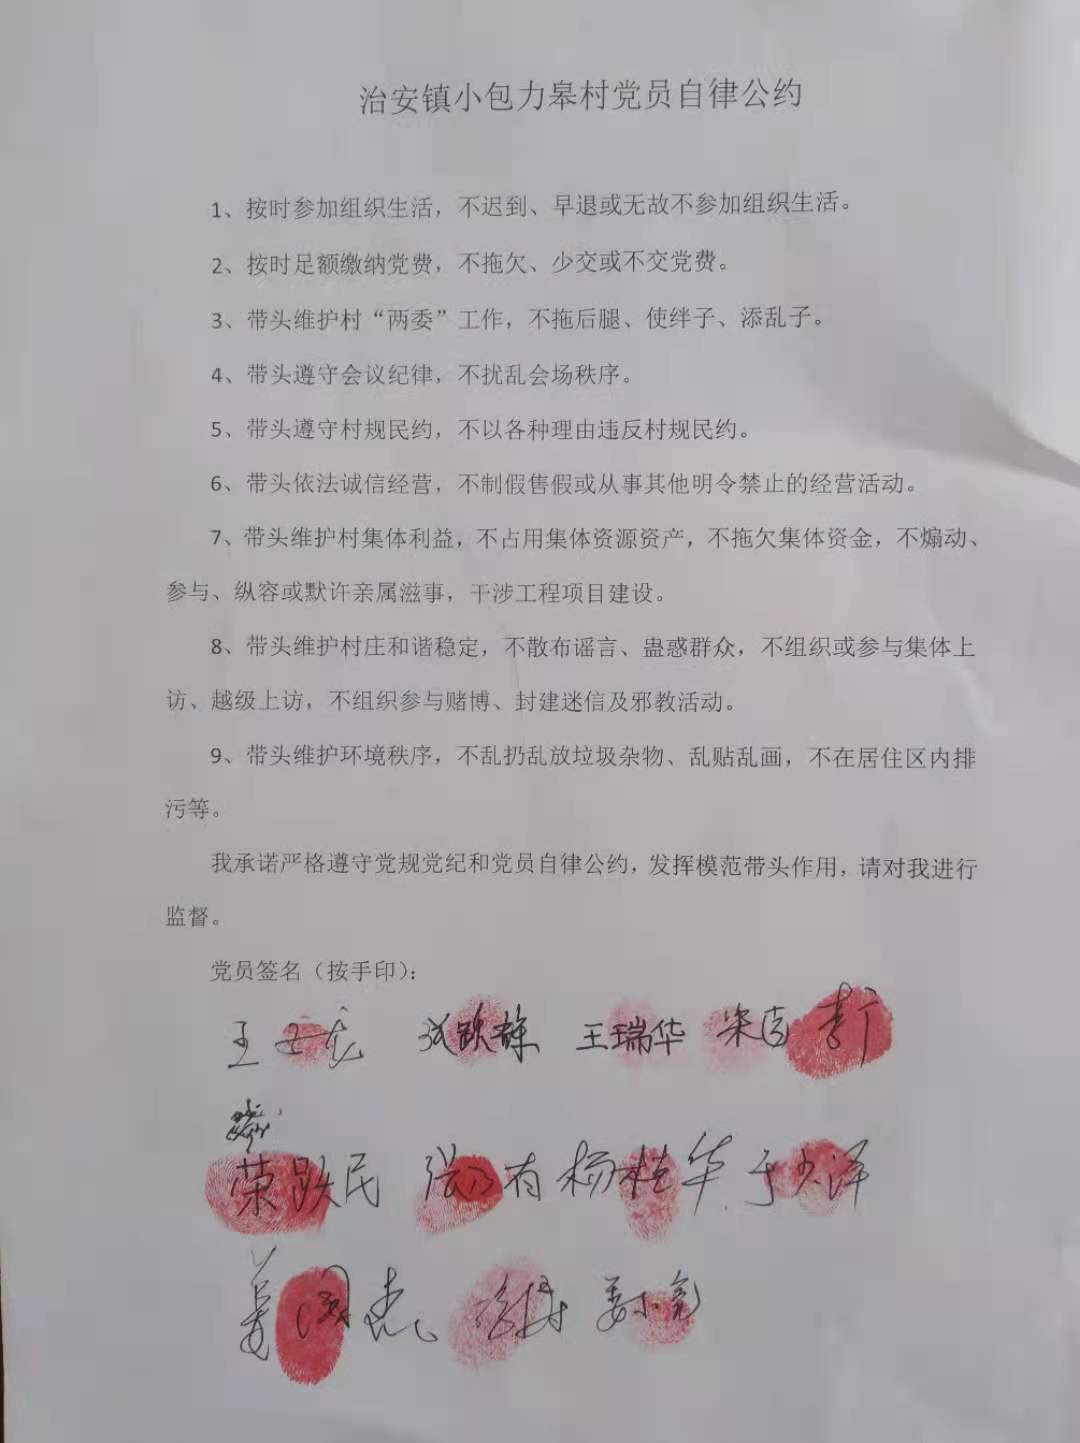 治安镇小包力皋村党员自律公约
1、按时参加组织生活，不迟到、早退或无故不参加组织生活。
2、按时足额缴纳党费，不拖欠、少交或不交党费。
3、带头维护村“两委”工作，不拖后腿、使绊子、添乱子。
4、带头遵守会议纪律，不扰乱会场秩序。
5、带头遵守村规民约，不以各种理由违反村规民约。
6、带头依法诚信经营，不制假售假或从事其他明令禁止的经营活动。
7、带头维护村集体利益，不占用集体资源资产，不拖欠集体资金，不煽动、
参与、纵容或默许亲属滋事，干涉工程项目建设。
8、带头维护村庄和谐稳定，不散布谣言、蛊惑群众，不组织或参与集体上
访、越级上访，不组织参与赌博、封建迷信及邪教活动。
9、带头维护环境秩序，不乱扔乱放垃圾杂物、乱贴乱画，不在居住区内排
污等。
我承诺严格遵守党规党纪和党员自律公约，发挥模范带头作用，请对我进行
监督。
党员签名（按手印）：
王瑞华
荣跃民 张乃有 杨桂华 于少洋